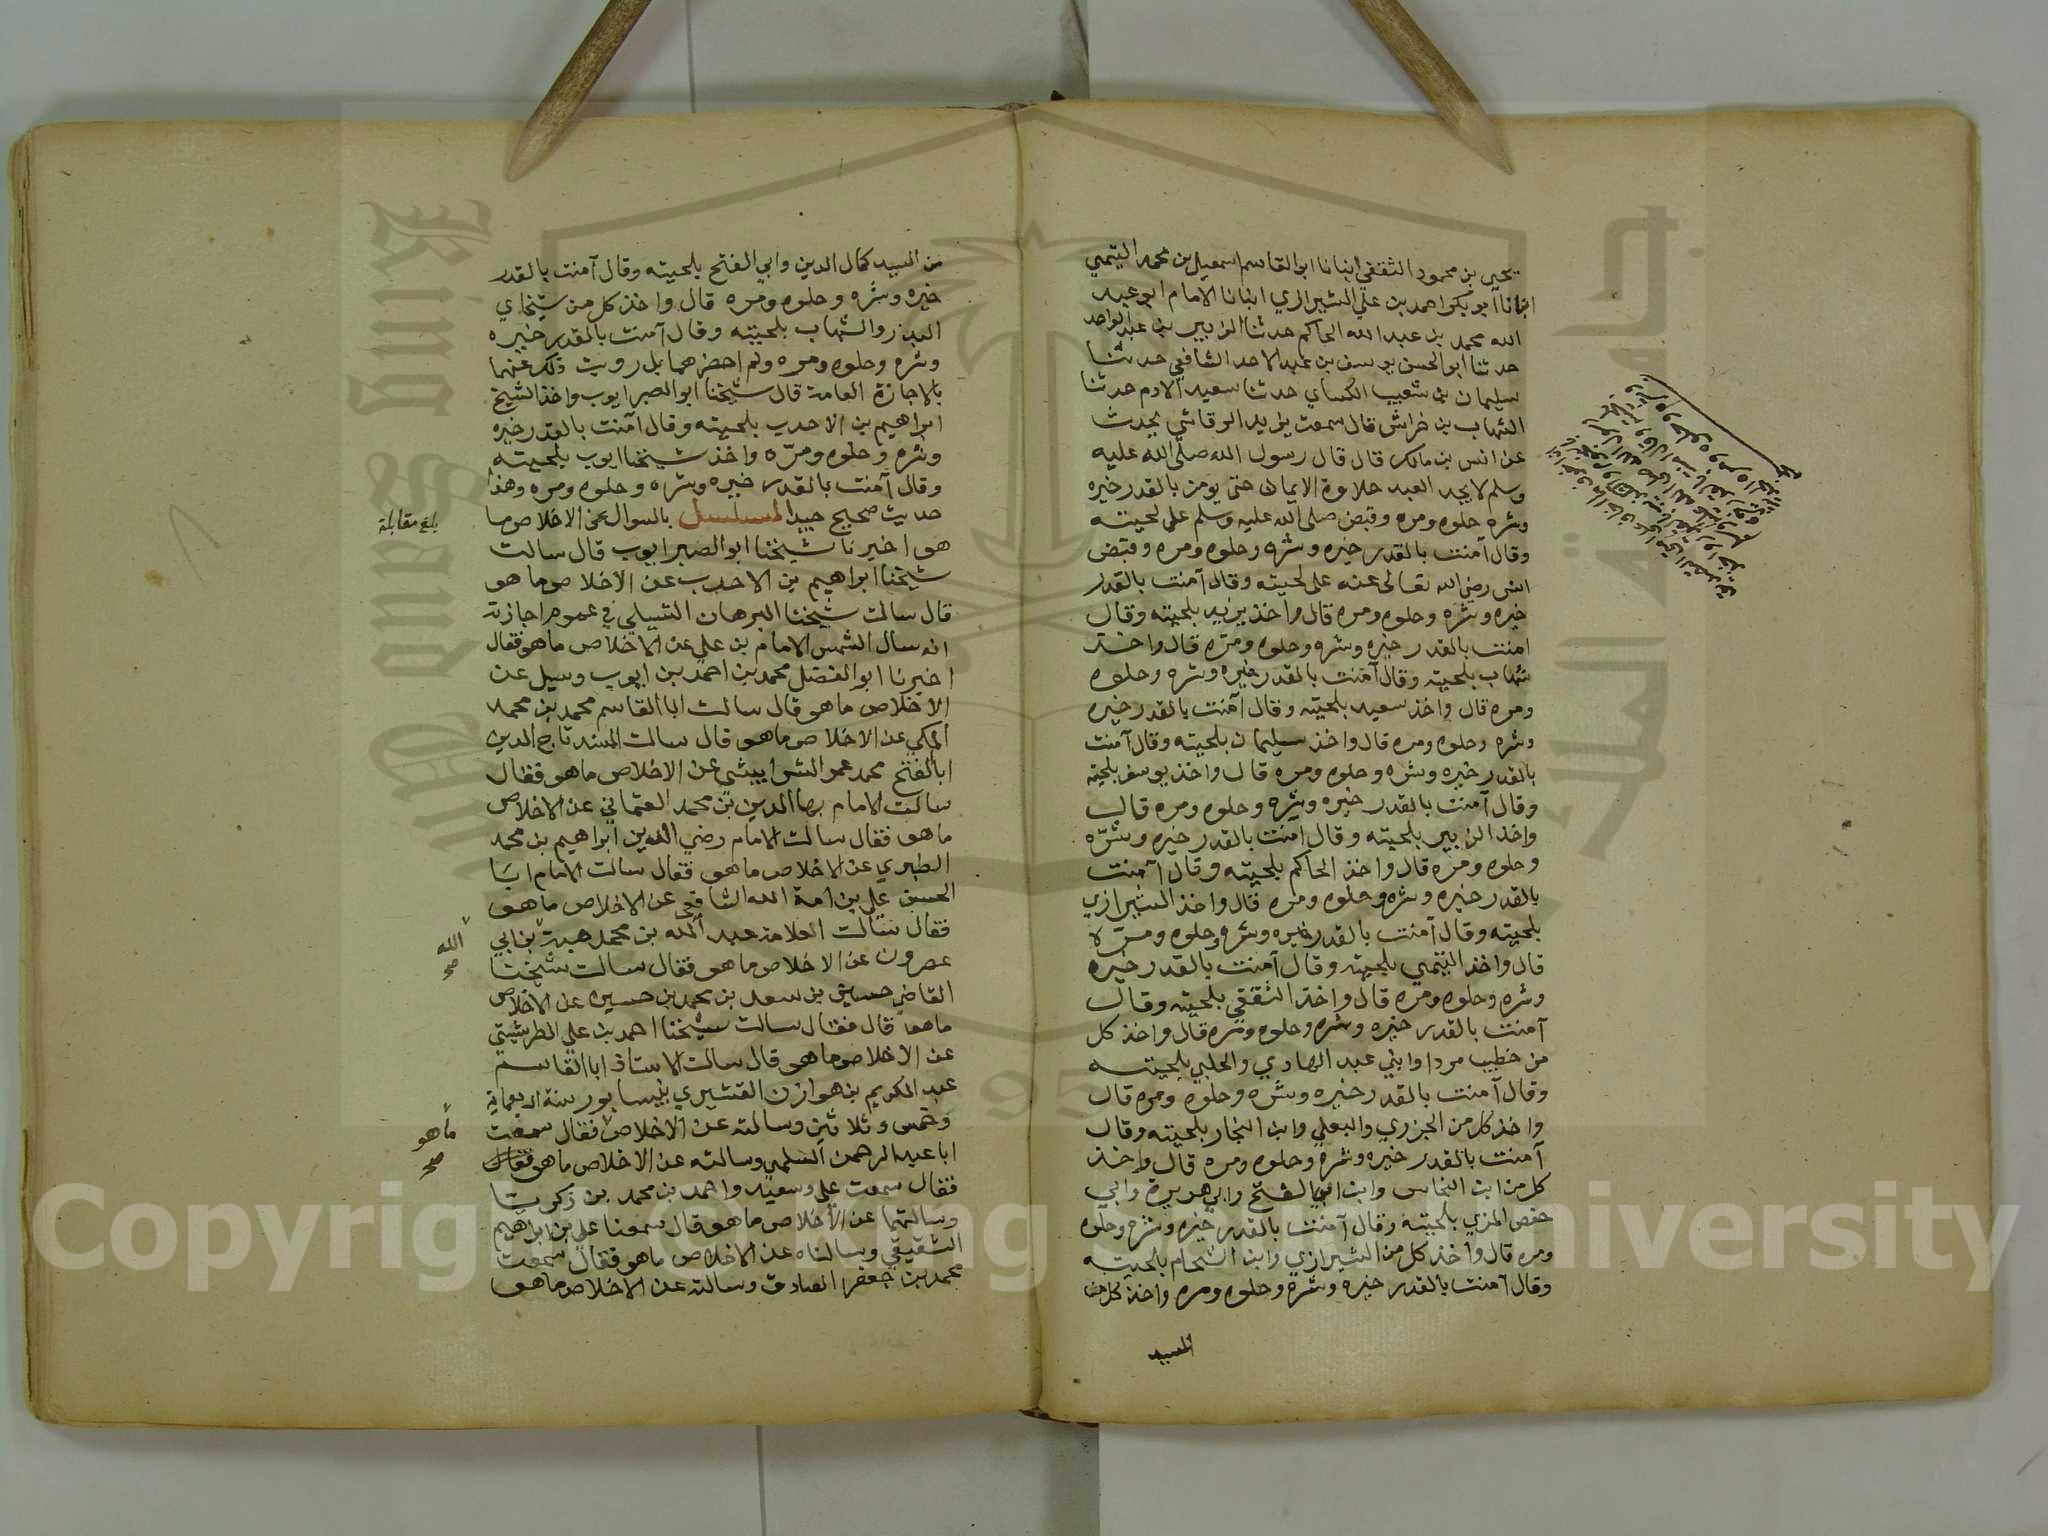 يحيى بن محمود الثقفي انبانا ابوالقاسم اسمعيل بن محمد التيمي
انبانا ابو بكر احمد بن علي الشيرازي انبانا الامام ابو عبد
الله محمد بن عبد الله الحاكم حدثنا الزبير بن عبد الواحد
حدثنا ابوالحسن يوسف بن عبد الاحد الشافعي حدثنا
سليمان بن شعيب الكساي حدثنا سعيد الادم حدثنا
الشهاب بن خراش قال سمعت يزيد الرقاشي يحدث
عن انس بن مالك قال قال رسول الله صلى الله عليه
وسلم لا يجد العبد حلاوة الايمان حتى يومن بالقدر خيره
وشره حلوه ومره وقبض صلى الله عليه وسلم على لحيته
وقال آمنت بالقدر خيره وشره وحلوه ومره وقبض
انس رضي الله تعالى عنه على لحيته وقال آمنت بالقدر
خيره وشره وحلوه ومره قال واخذ يزيد بلحيته وقال
امنت بالقدر خيره وشره وحلوه ومره قال واخذ
شهاب بلحيته وقال آمنت بالقدر خيره وشره وحلوه
ومره قال واخذ سعيد بلحيته وقال آمنت بالقدر خيره
وشره وحلوه ومره قال واخذ سليمان بلحيته وقال آمنت
بالقدر خيره وشره وحلوه ومره قال واخذ يوسف بلحيته
وقال آمنت بالقدر خيره وشره وحلوه ومره قال
واخذ الزبير بلحيته وقال امنت بالقدر خيره وشره
وحلوه ومره قال واخذ الحاكم بلحيته وقال آمنت
بالقدر خيره وشره وحلوه ومره قال واخذ الشيرازي
بلحيته وقال آمنت بالقدر خيره وشره وحلوه ومره
قال واخذ التيمي بلحيته وقال آمنت بالقدر خيره
وشره وحلوه ومره قال واخذ الثقفي بلحيته وقال
آمنت بالقدر خيره وشره وحلوه ومره قال واخذ كل
من خطيب مردا وابني عبد الهادي والحلبي بلحيته
وقال آمنت بالقدر خيره وشره وحلوه ومره قال
واخذ كل من الجزري والبعلي وابن النجار بلحيته وقال
آمنت بالقدر خيره وشره وحلوه ومره قال واخذ
كل من ابن النحاس وابن ابي الفتح وابي هريرة وابي
حفص المزي بلحيته وقال آمنت بالقدر خيره وشره وحلوه
ومره قال واخذ كل من الشيرازي وابن الشحام بلحيته
وقال آمنت بالقدر خيره وشره وحلوه ومره واخذ كل من
السيد
من السيد كمال الدين وابي الفتح بلحيته وقال آمنت بالقدر
خيره وشره وحلوه ومره قال واخذ كل من شيخاي
البدر والشهاب بلحيته وقال آمنت بالقدر خيره
وشره وحلوه ومره ولم احضرهما بل رويت ذلك عنهما
بالاجازة العامة قال شيخنا ابوالصبر ايوب واخذ الشيخ
ابراهيم بن الاحدب بلحيته وقال آمنت بالقدر خيره
وشره وحلوه ومره واخذ شيخنا ايوب بلحيته
وقال آمنت بالقدر خيره وشره وحلوه ومره وهذا
حديث صحيح جيد المسلسل بالسوال عن الاخلاص ما
بلغ مقابلة
هو اخبرنا شيخنا ابوالصبر ايوب قال سالت
شيخنا ابراهيم بن الاحدب عن الاخلاص ما هو
قال سالت شيخنا البرهان الشبيلي في عموم اجازته
انه سال الشمس الامام بن علي عن الاخلاص ما هو فقال
اخبرنا ابوالفضل محمد بن احمد بن ايوب وسيل عن
الاخلاص ما هو قال سالت اباالقاسم محمد بن محمد
المكي عن الاخلاص ما هو قال سالت المسند تاج الدين
اباالفتح محمد عمر الشرابيشي عن الاخلاص ما هو فقال
سالت الامام بهاالدين بن محمد العثماني عن الاخلاص
ما هو فقال سالت الامام رضي الدين ابراهيم بن محمد
الطبري عن الاخلاص ما هو فقال سالت الامام ابا
الحسن علي بن هبة الله الشافعي عن الاخلاص ما هو
فقال سالت العلامة عبد الله بن محمد هبة بن ابي
الله
صح
عصرون عن الاخلاص ما هو فقال سالت شيخنا
القاضي حسين بن سعد بن محمد بن حسيره عن الاخلاص
ما هو قال فقال سالت شيخنا احمد بن علي الطريثيثي
عن الاخلاص ما هو قال سالت الاستاذ اباالقاسم
عبد الكريم بن هوازن القشيري بنيسابور سنة اربعماية
وخمس وثلاثين وسالته عن الاخلاص فقال سمعت
ما هو
صح
ابا عبد الرحمن السلمي وسالته عن الاخلاص ما هو فقال
فقال سمعت علي وسعيد واحمد بن محمد بن زكريا
وسالتهما عن الاخلاص ما هو قال سمعنا علي بن ابراهيم
الشقيقي وسالناه عن الاخلاص ما هو فقال سمعت
محمد بن جعفر الصادق وسالته عن الاخلاص ما هو
Copyright © King Saud University
King Saud University
جامعة الملك سعود